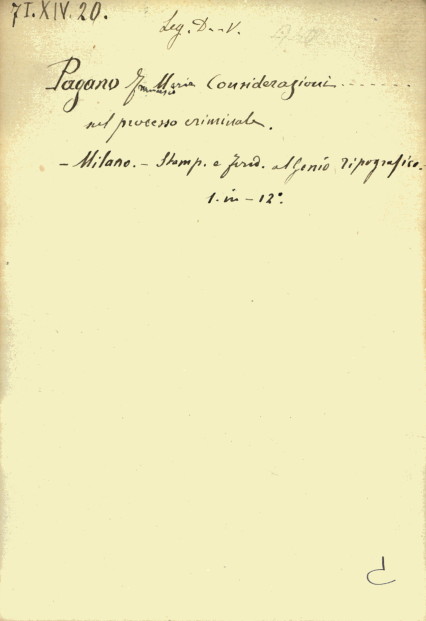 71.XIV.20.
Leg. D--V.
Pagano Francesco Maria Considerazioni
nel processo criminale.
- Milano. - Stamp. e fond. al Genio Tipografico.
1. in - 12°.